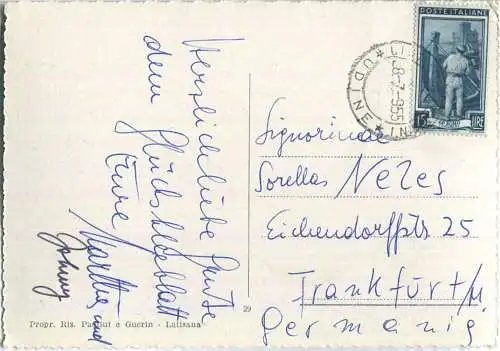 Herzlichliebe Grüße
dem Glückskleeblatt
Eure Martha und
Johnny
POSTE ITALIANE
15 LIRE
UDINE
8-7-955
Signorine
Sorellas Neles
Eichendorffstr 25
Frankfurt/M
Germania
29
Propr. Ris. e Guerin - Latisana